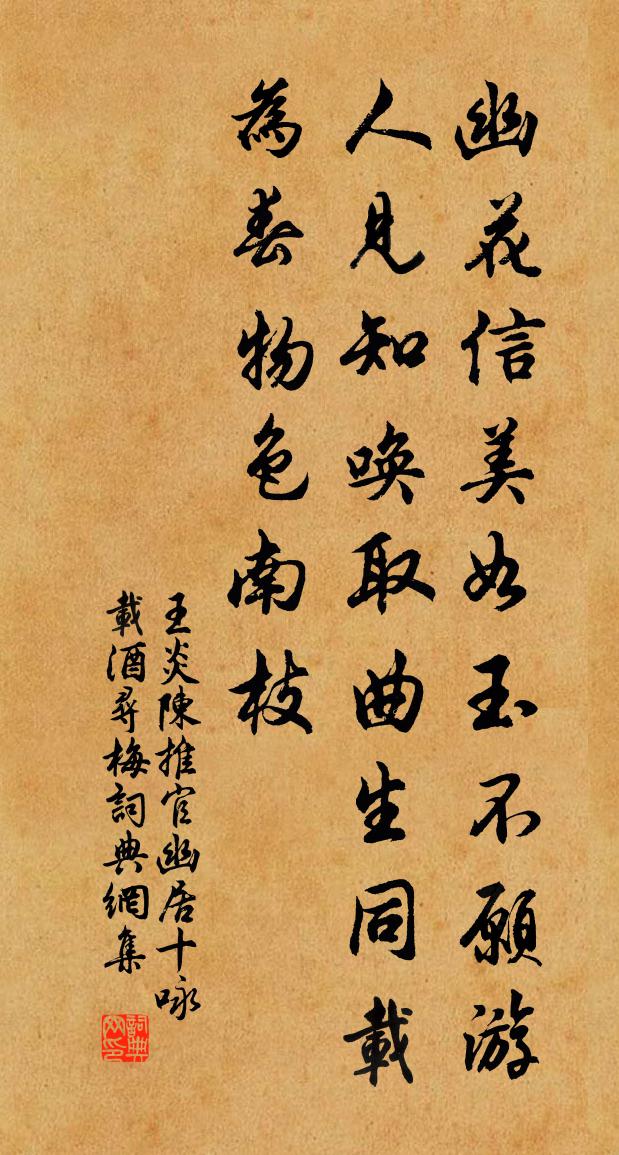 幽花信美如玉不願游
人見知喚取曲生同載
為春物色南枝
王炎陳推官幽居十咏
載酒尋梅詞典網集
詞典网印